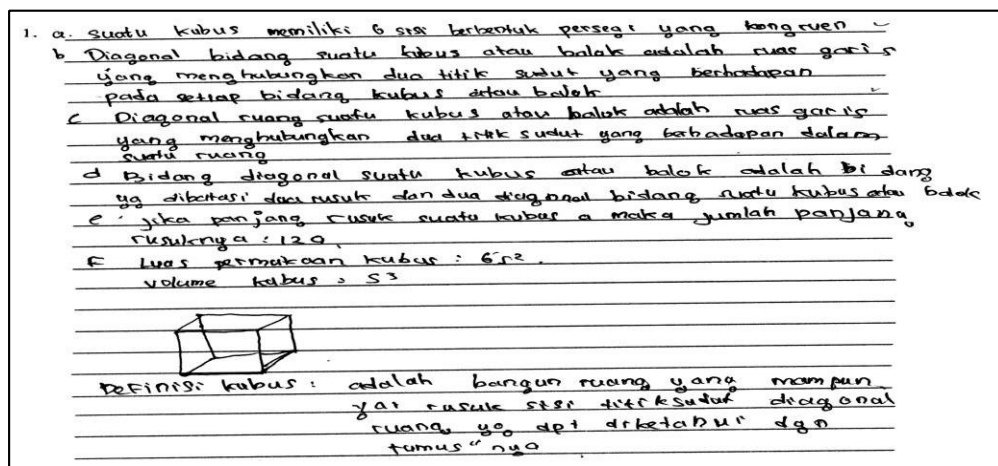 1. a. suatu kubus memiliki 6 sisi berbentuk persegi yang kongruen
b Diagonal bidang suatu kubus atau balok adalah ruas garis
yang menghubungkan dua titik sudut yang berhadapan
pada setiap bidang kubus atau balok
c Diagonal ruang suatu kubus atau balok adalah ruas garis
yang menghubungkan dua titik sudut yang berhadapan dalam
suatu ruang
d Bidang diagonal suatu kubus atau balok adalah bidang
yg dibatasi dua rusuk dan dua diagonal bidang suatu kubus atau balok
e. jika panjang rusuk suatu kubus a maka jumlah panjang
rusuknya : 12a
F Luas permukaan kubus : 6s²
volume kubus = s³
Definisi kubus : adalah bangun ruang yang mempun
yai rusuk sisi titik sudut diagonal
ruang yg dpt diketahui dgn
rumus" nya